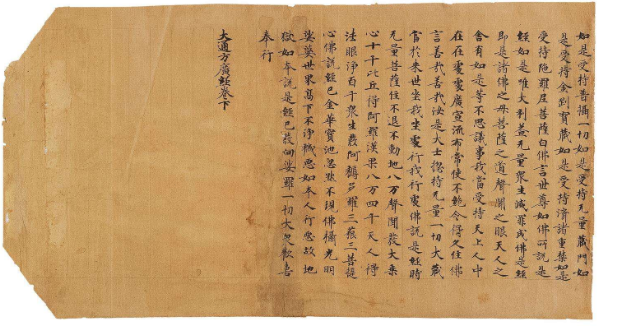 如是受持普攝一切如是受持无量藏門如
是受持金剛寶藏如是受持濟諸重業如是
受持陁羅尼菩薩白佛言世尊如佛所說是
經如是唯大利益无量衆生滅罪成佛是經
即是諸佛之母菩薩之道聲聞之眼天人之
舍有如是等不思議事我當受持天上人中
在在處處廣宣流布常使不絶令得久住佛
言善哉善哉汝是大士擔持无量一切大藏
當於來世坐我坐處行我行處佛說是經時
无量菩薩住不退不動地八万聲聞發大乘
心十千比丘得阿羅漢果八万四千天人得
法眼淨百千衆生發阿耨多羅三藐三菩提
心佛說經已金華寶池忽然不現佛攝光明
娑婆世界高下不淨穢惡如本人行惡故地
獄如本說是經已裟伽婆羅一切大衆歡喜
奉行
大通方廣經卷下